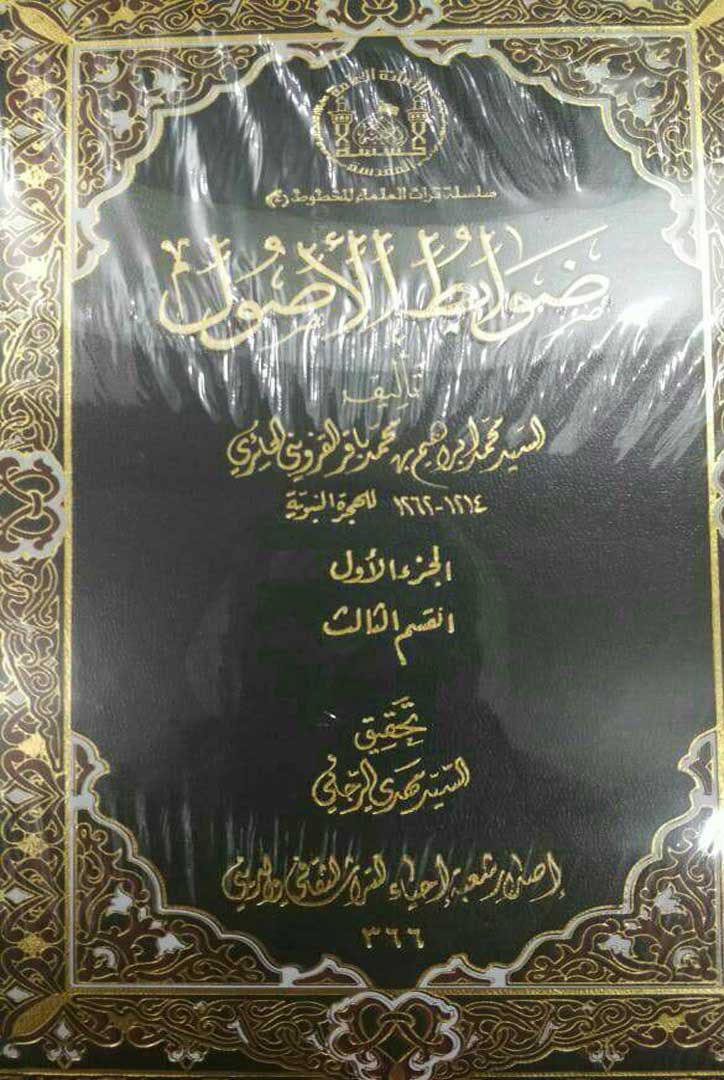 الأمانة العامة
المقدسة
سلسلة تراث العلماء المخطوط (٤)
ضوابط الأصول
تأليف
السيد محمد إبراهيم بن محمد باقر القزويني الحائري
١٢١٤-١٢٦٢ للهجرة النبوية
الجزء الأول
القسم الثالث
تحقيق
السيد مهدي الرجائي
إصدار شعبة إحياء التراث الثقافي والديني
٣٦٦